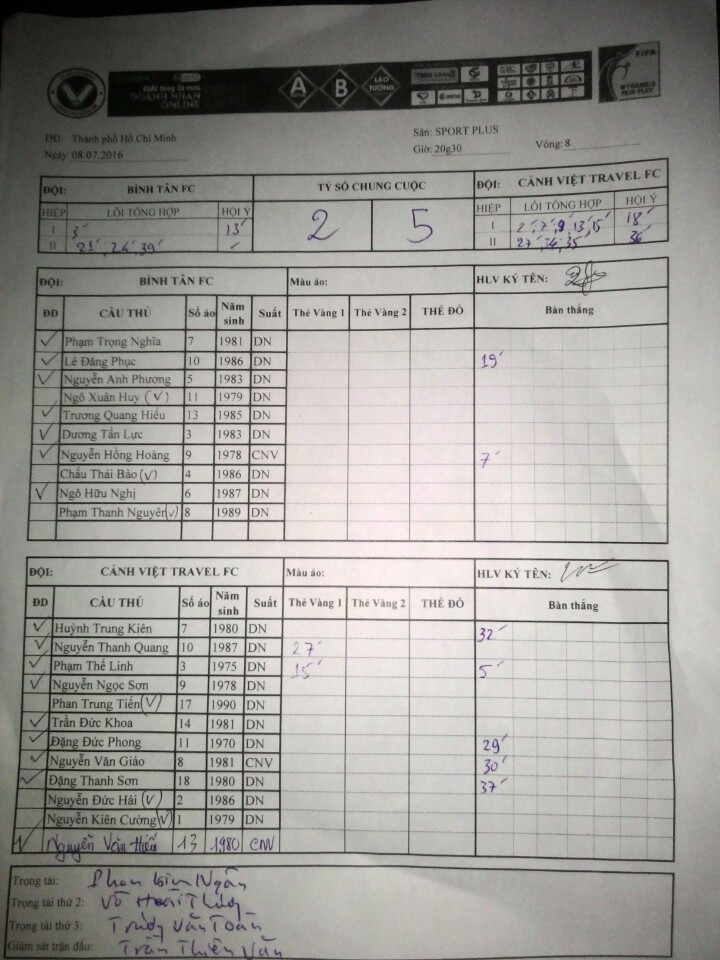 GIẢI bóng đá mini
DOANH NHÂN
ONLINE
A B LÃO TƯỚNG
FIFA
MY GAME IS FAIR PLAY
ĐĐ: Thành phố Hồ Chí Minh
Sân: SPORT PLUS
Ngày: 08.07.2016
Giờ: 20g30
Vòng: 8
ĐỘI: BÌNH TÂN FC TỶ SỐ CHUNG CUỘC ĐỘI: CẢNH VIỆT TRAVEL FC
HIỆP LỖI TỔNG HỢP HỘI Ý 2 5 HIỆP LỖI TỔNG HỢP HỘI Ý
I 3' 13' I 2',7',9',13',15' 18'
II 21', 24', 39' II 27', 34', 35' 36'
ĐỘI: BÌNH TÂN FC Màu áo: HLV KÝ TÊN:
ĐD CẦU THỦ Số áo Năm sinh Suất Thẻ Vàng 1 Thẻ Vàng 2 THẺ ĐỎ Bàn thắng
✓ Phạm Trọng Nghĩa 7 1981 DN
✓ Lê Đăng Phục 10 1986 DN 19'
✓ Nguyễn Anh Phương 5 1983 DN
Ngô Xuân Huy (v) 11 1979 DN
✓ Trương Quang Hiếu 13 1985 DN
✓ Dương Tấn Lực 3 1983 DN
✓ Nguyễn Hồng Hoàng 9 1978 CNV 7'
Châu Thái Bảo (v) 4 1986 DN
✓ Ngô Hữu Nghị 6 1987 DN
Phạm Thanh Nguyên (v) 8 1989 DN
ĐỘI: CẢNH VIỆT TRAVEL FC Màu áo: HLV KÝ TÊN:
ĐD CẦU THỦ Số áo Năm sinh Suất Thẻ Vàng 1 Thẻ Vàng 2 THẺ ĐỎ Bàn thắng
✓ Huỳnh Trung Kiên 7 1980 DN 32'
✓ Nguyễn Thanh Quang 10 1987 DN 27'
✓ Phạm Thế Linh 3 1975 DN 15' 5'
✓ Nguyễn Ngọc Sơn 9 1978 DN
Phan Trung Tiến (v) 17 1990 DN
✓ Trần Đức Khoa 14 1981 DN
✓ Đặng Đức Phong 11 1970 DN 29'
✓ Nguyễn Văn Giáo 8 1981 CNV 30'
✓ Đặng Thanh Sơn 18 1980 DN 37'
Nguyễn Đức Hải (v) 2 1986 DN
Nguyễn Kiên Cường (v) 1 1979 DN
✓ Nguyễn Văn 13 1980 CNV
Trọng tài: Phan Kim Ngân
Trọng tài thứ 2: Võ Hoài
Trọng tài thứ 3: Văn Toàn
Giám sát trận đấu: Trần Thiên Văn